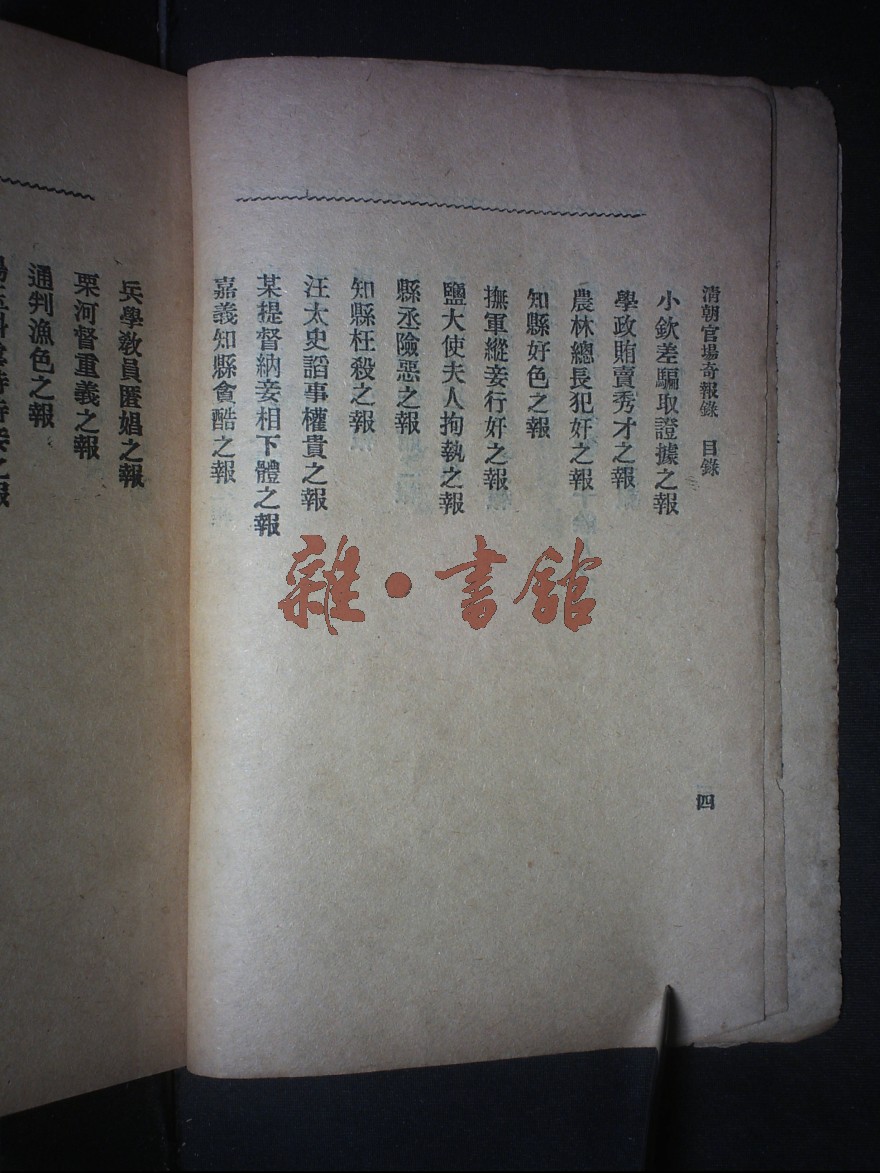 清朝官場奇報錄 目錄
小欽差騙取證據之報
學政賄賣秀才之報
農林總長犯奸之報
知縣好色之報
撫軍縱妾行奸之報
鹽大使夫人拘執之報
縣丞險惡之報
知縣枉殺之報
汪太史謟事權貴之報
某提督納妾相下體之報
嘉義知縣貪酷之報
四
兵學教員匿娼之報
栗河督重義之報
通判漁色之報
雜·書館